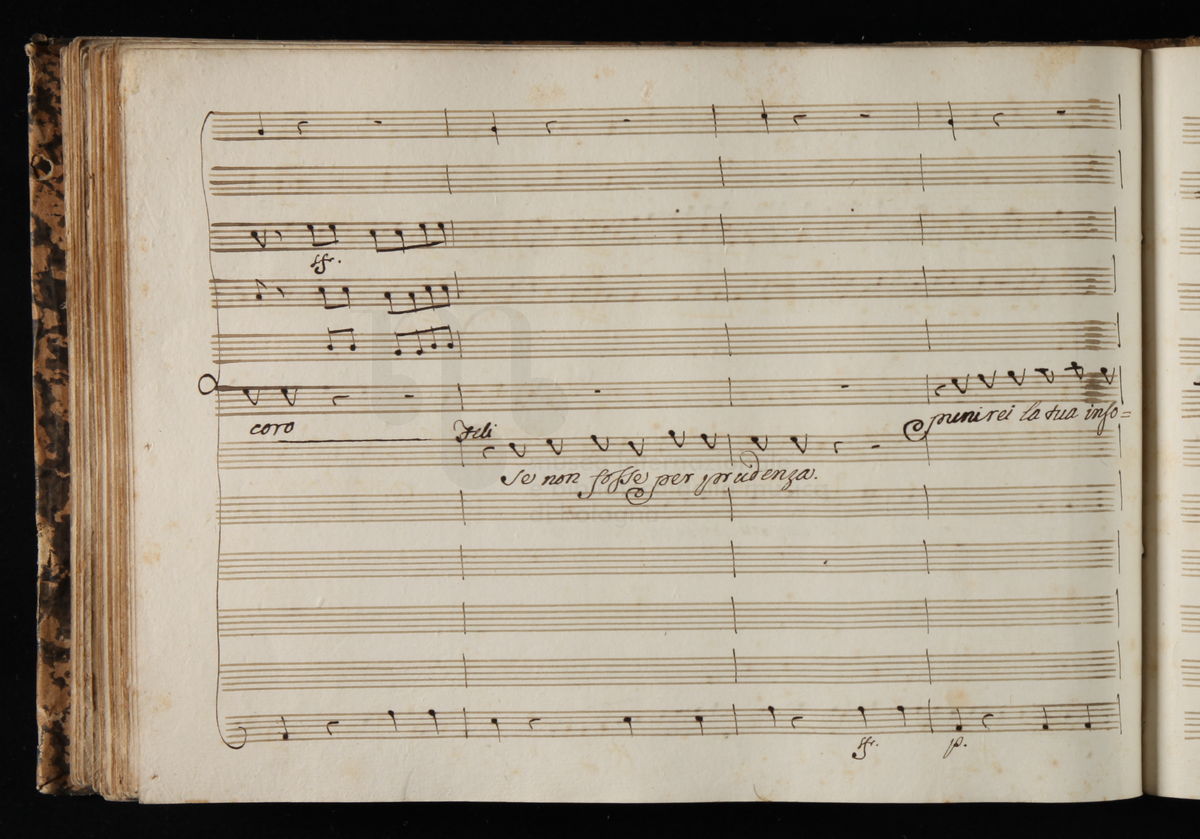 sfr.
coro
Feli
punirei la tua info=
se non fosse per prudenza.
di Bologna
sfr. p.